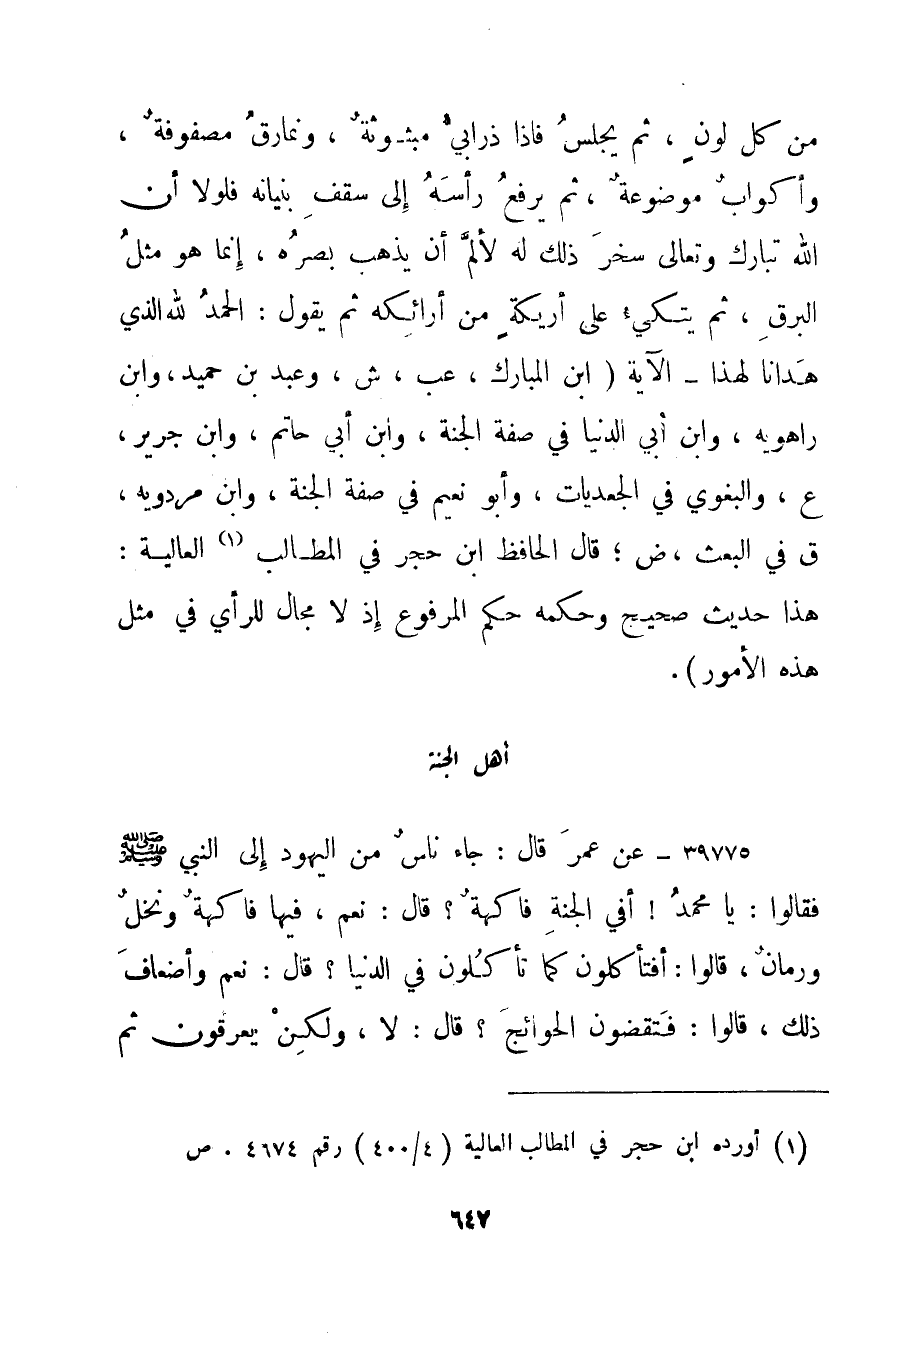 من كل لونٍ ، ثم يجلسُ فاذا ذرابيُّ مبثـوثةٌ ، ونمارقُ مصفوفةٌ ،
وأكوابٌ موضوعةٌ ، ثم يرفعُ رأسَهُ إلى سقفِ بنيانه فلولا أن
الله تبارك وتعالى سخرَ ذلك له لألمَّ أن يذهب بصرُه ، إنما هو مثلُ
البرقِ ، ثم يتكيء على أريكةٍ من أرائكه ثم يقول : الحمدُ لله الذي
هدَانا لهذا - الآية ( ابن المبارك ، عب ، ش ، وعبد بن حميد ، وابن
راهويه ، وابن أبي الدنيا في صفة الجنة ، وابن أبي حاتم ، وابن جرير ،
ع ، والبغوي في الجعديات ، وأبو نعيم في صفة الجنة ، وابن مردويه ،
ق في البعث ، ض ؛ قال الحافظ ابن حجر في المطـالب (١) العاليـة :
هذا حديث صحيح وحكمه حكم المرفوع إذ لا مجال للرأي في مثل
هذه الأمور ) .
أهل الجنة
٣٩٧٧٥ - عن عمرَ قال : جاء ناسٌ من اليهود إلى النبي ﷺ
فقالوا : يا محمدُ ! أفي الجنةِ فاكهةٌ ؟ قال : نعم ، فيها فاكهةٌ ونخلٌ
ورمانٌ ، قالوا : أفتأكلون كما تأكلُون في الدنيا ؟ قال : نعم وأضعافَ
ذلك ، قالوا : فَتقضون الحوائجَ ؟ قال : لا ، ولكنْ يعرقون ثم
(١) أورده ابن حجر في المطالب العالية ( ٤/٤٠٠ ) رقم ٤٦٧٤ . ص
٦٤٧